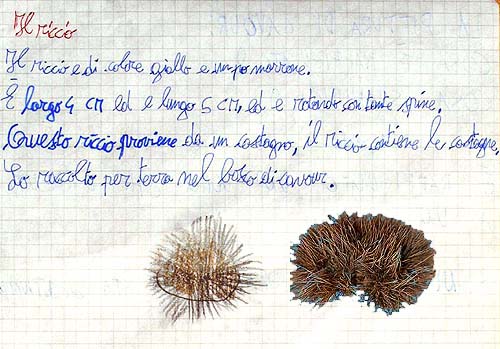 Il riccio
Il riccio e di colore giallo e un po marrone.
È largo 4 CM ed e lungo 5 CM, ed e rotondo con tante spine.
Questo riccio proviene da un castagno, il riccio contiene le castagne,
Lo raccolto per terra nel bosco di cavour.